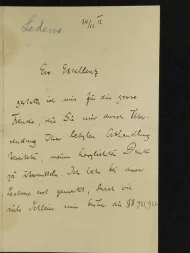 Lederer
Ew. Exzellenz
gestatte ich mir für die grosse
Freude, die Sie mir durch Über-
sendung Ihrer letzten Abhandlung
bereitet, meinen herzlichsten Dank
zu übermitteln. Ich habe bei deren
Lektüre erst gemerkt, durch wie
viele